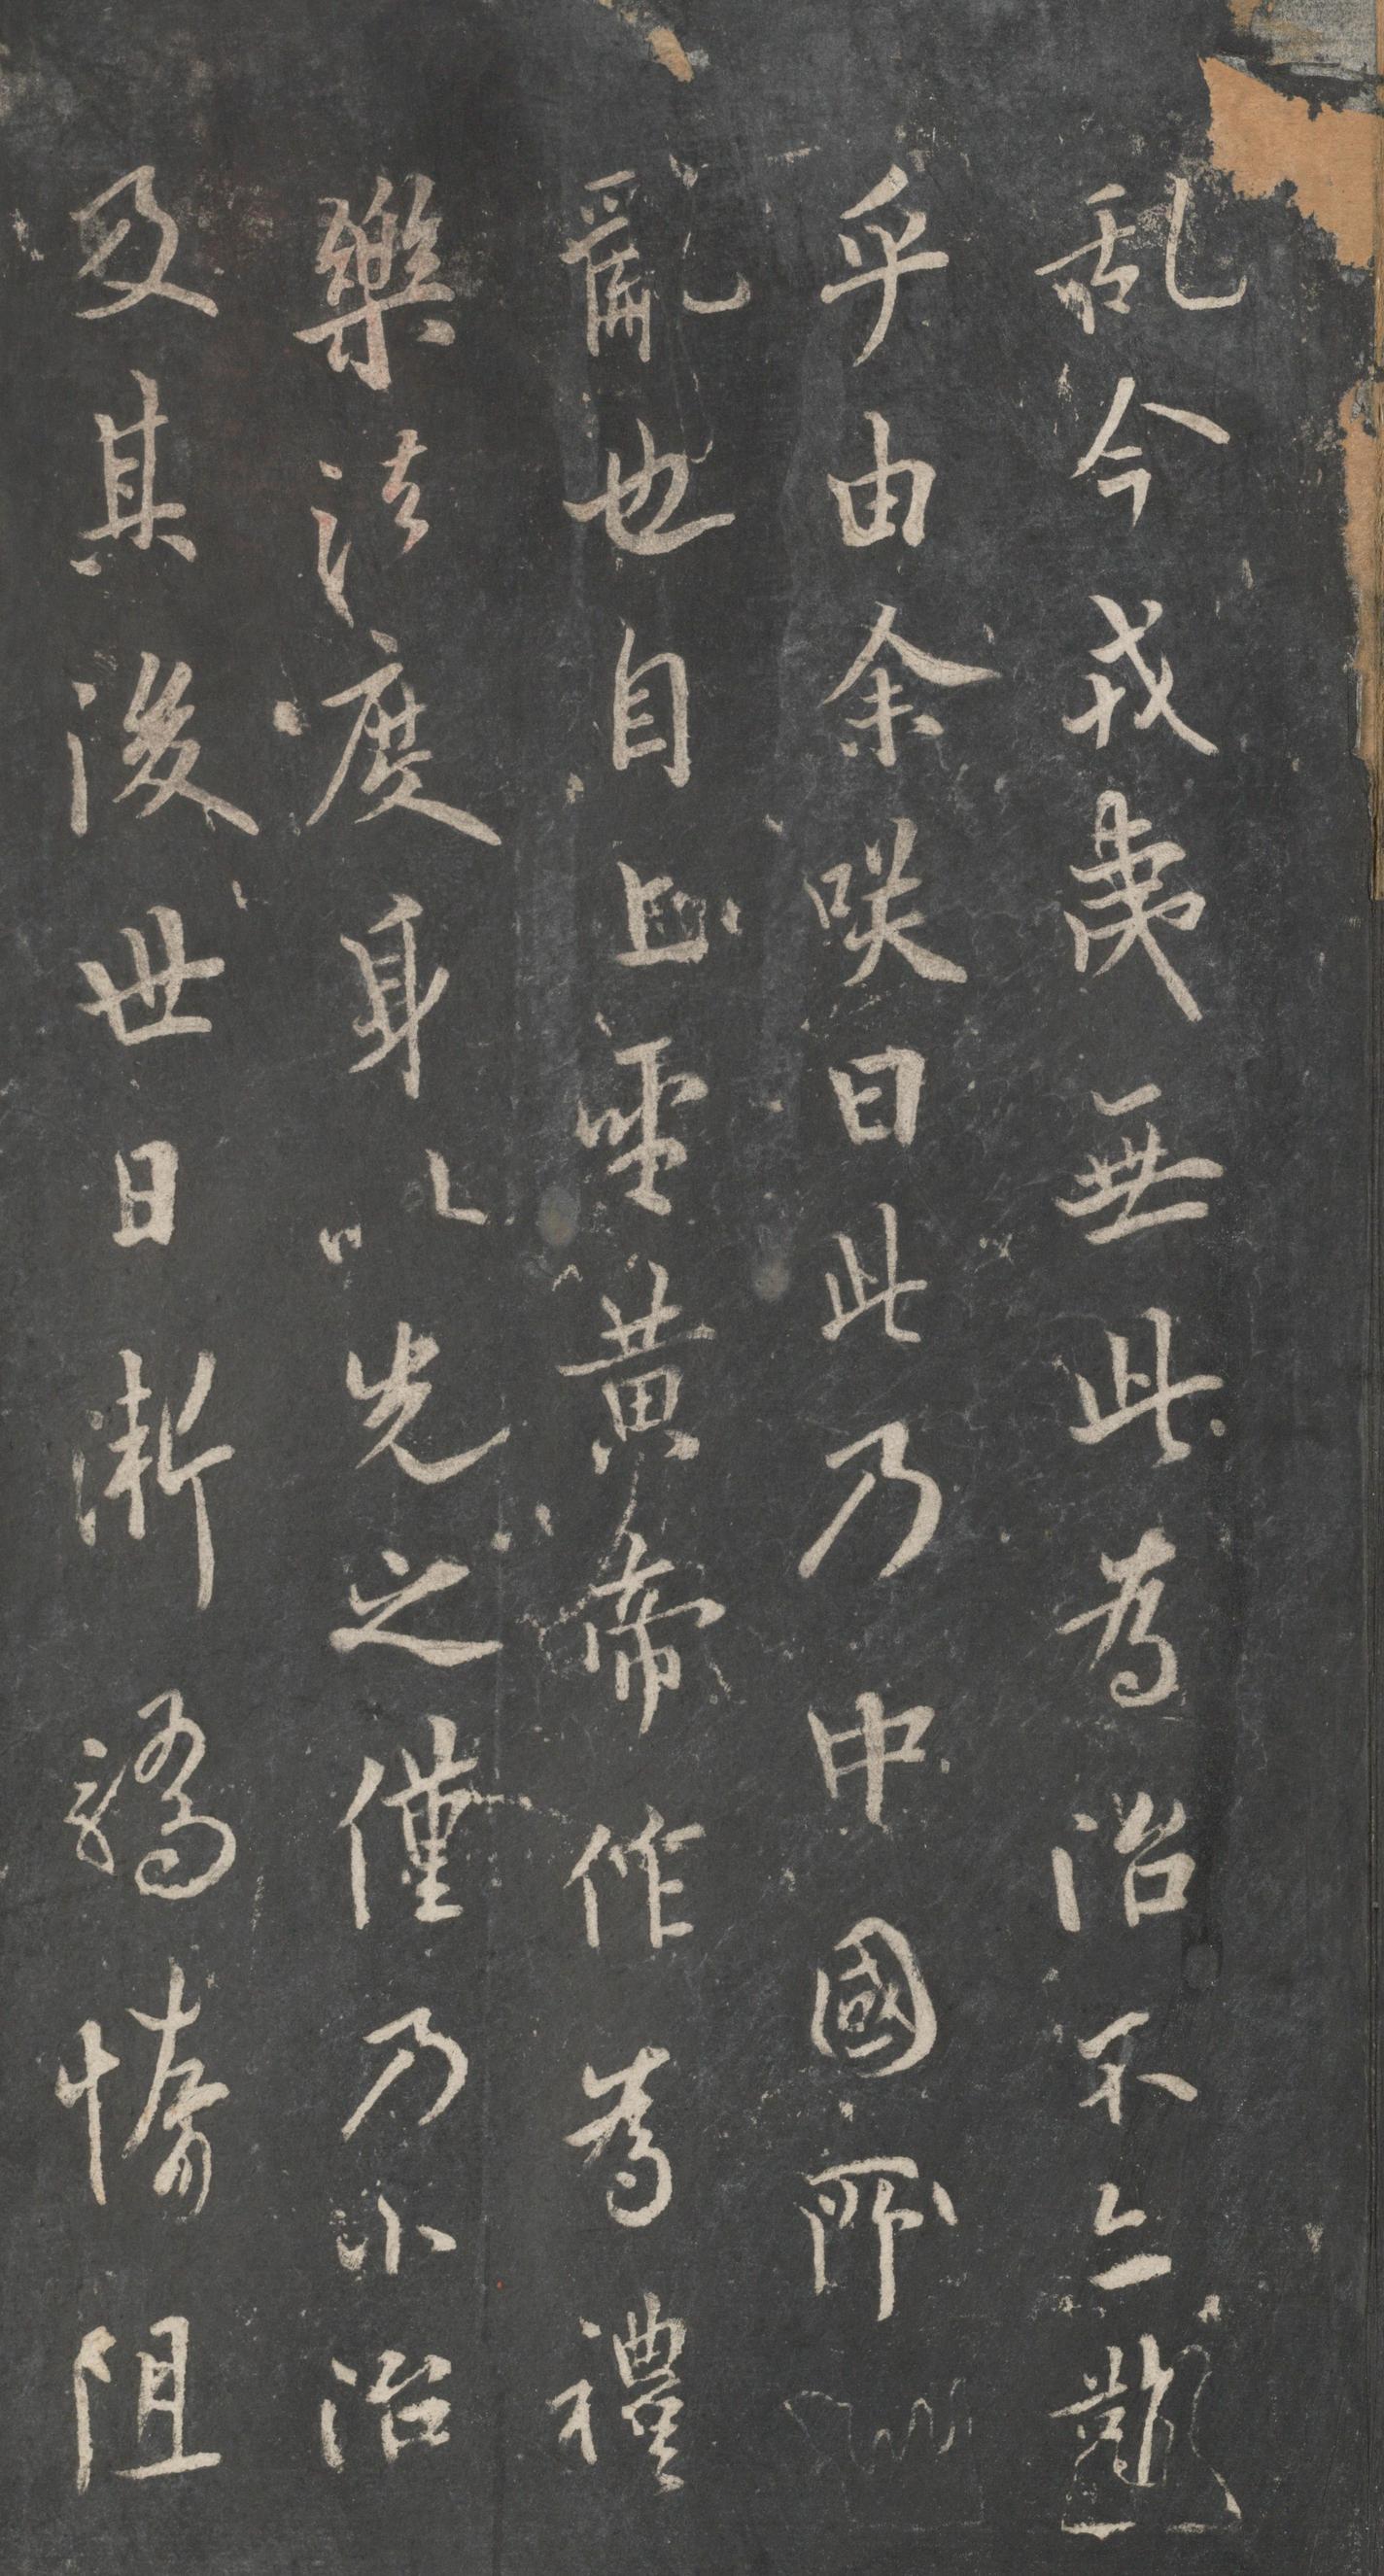 乱今戎夷無此為治不亦難
乎由余咲曰此乃中國所
亂也自上聖黄帝作為禮
樂法度身以先之僅乃小治
及其後世日漸驕惰阻